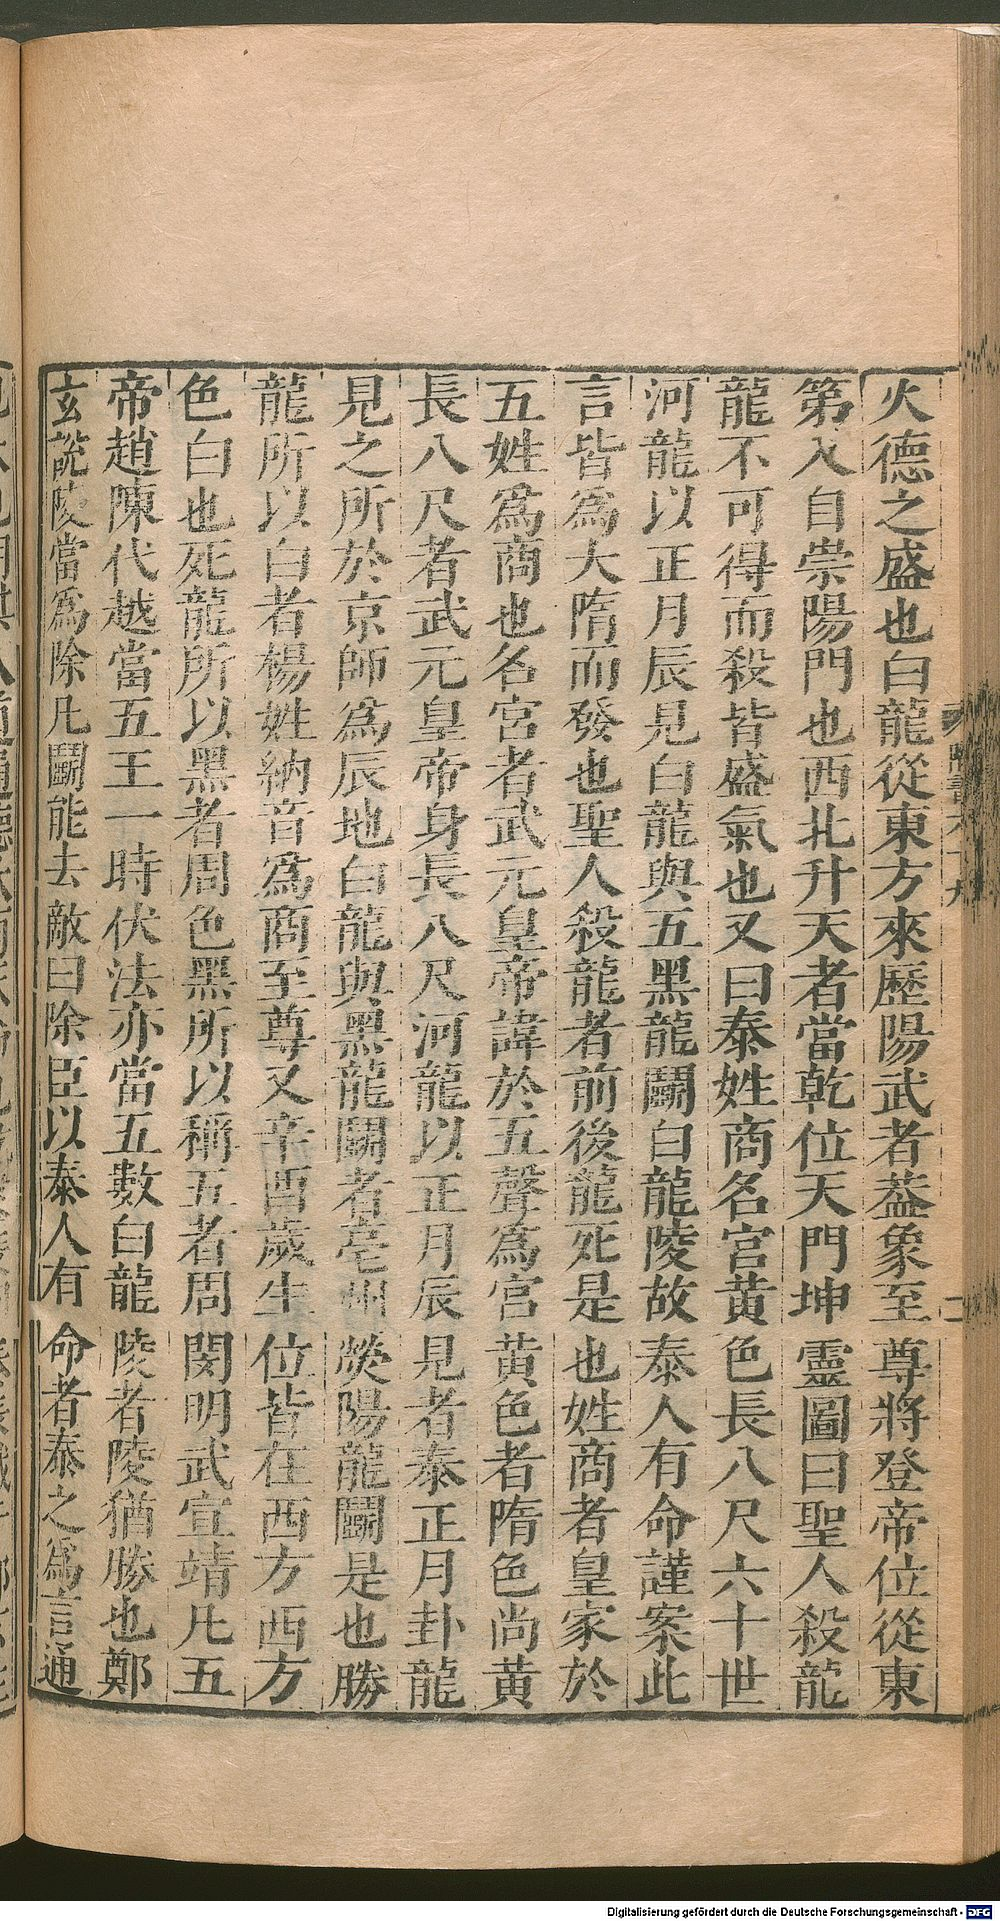 火德之盛也白龍從東方來歷陽武者葢象至尊將登帝位從東
第入自崇陽門也西北升天者當乾位天門坤靈圖曰聖人殺龍
龍不可得而殺皆盛氣也又曰泰姓商名宮黃色長八尺六十世
河龍以正月辰見白龍與五黑龍鬭白龍陵故泰人有命謹案此
言皆爲大隋而發也聖人殺龍者前後龍死是也姓商者皇家於
五姓爲商也名宮者武元皇帝諱於五聲爲宮黃色者隋色尚黃
長八尺者武元皇帝身長八尺河龍以正月辰見者泰正月卦龍
見之所於京師爲辰地白龍與黑龍鬭者亳州滎陽龍鬭是也勝
龍所以白者楊姓納音爲商至尊又辛酉歲生位皆在西方西方
色白也死龍所以黑者周色黑所以稱五者周閔明武宣靖凡五
帝趙陳代越當五王一時伏法亦當五數白龍陵者陵猶勝也鄭
玄說陵當爲除凡鬭能去敵曰除臣以泰人有命者泰之爲言通
Digitalisierung gefördert durch die Deutsche Forschungsgemeinschaft - DFG